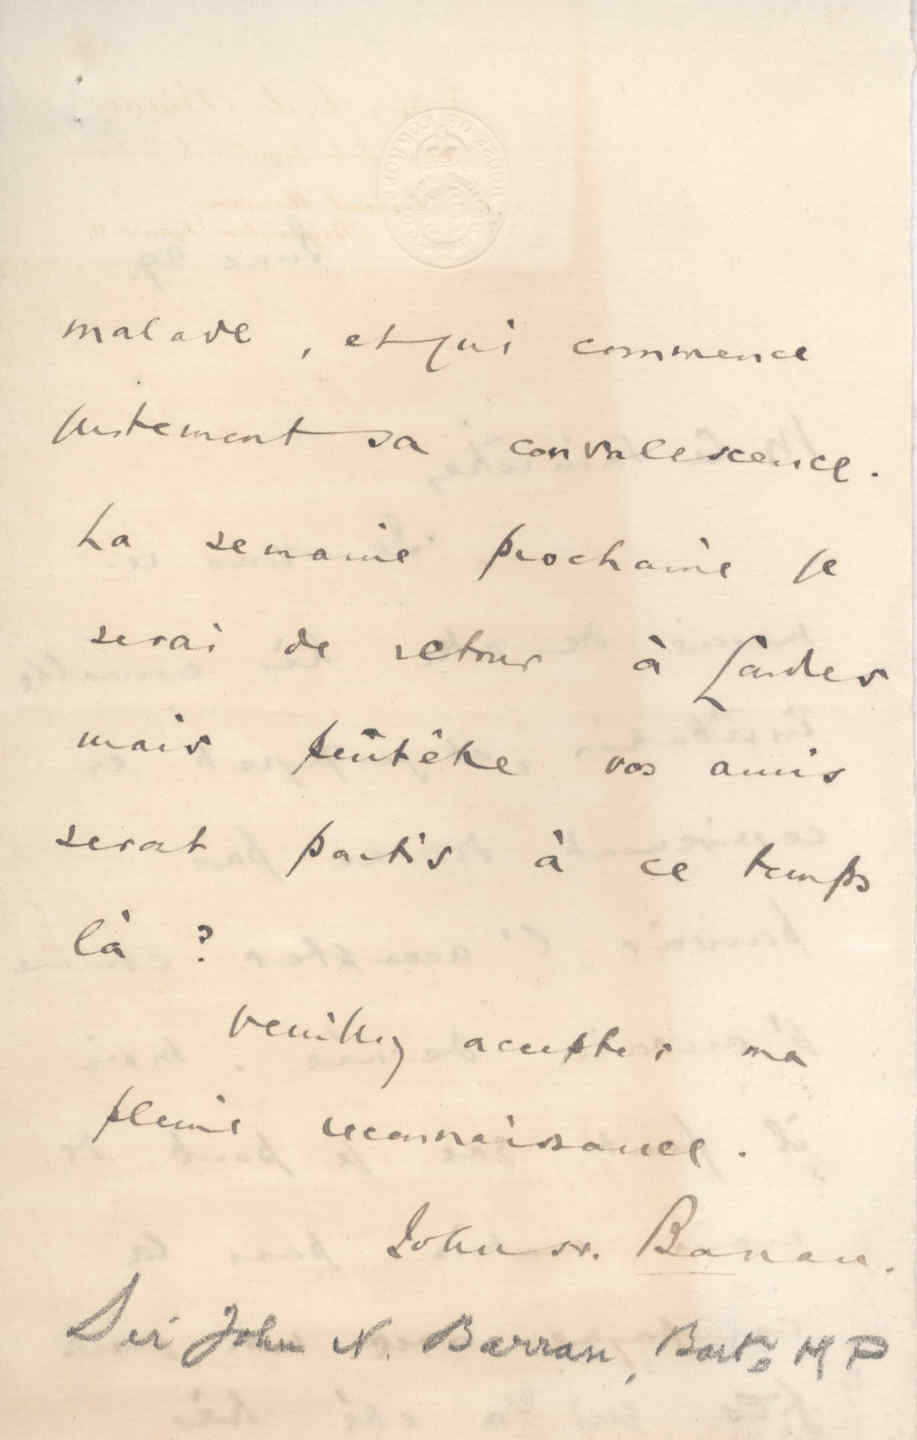 malade, et qui commence
justement sa convalescence.
La semaine prochaine je
serai de retour à Londres
mais peûtêtre vos amis
serat partis à ce temps
là ?
Veuillez accepter ma
pleine reconnaissance.
John N. Barran.
Sir John N. Barran, Bart. MP